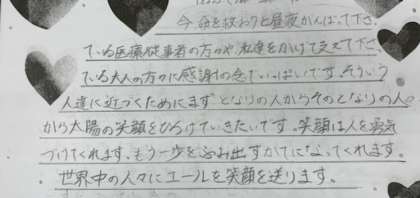 今 毎を救おうと昼夜がんばって下さ
ている医療従事者の方々や、私達をかげで支えて下さ
ている大人の方々に感謝の念でいっぱいです。そういう
人達に近づくためにまず となりの人からそのとなりの人。
から太陽の笑顔をひろげていきたいです。笑顔は人を勇気
づけてくれます。もう一歩をふみ出すかてになってくれます。
世界中の人々にエールを笑顔を送ります。